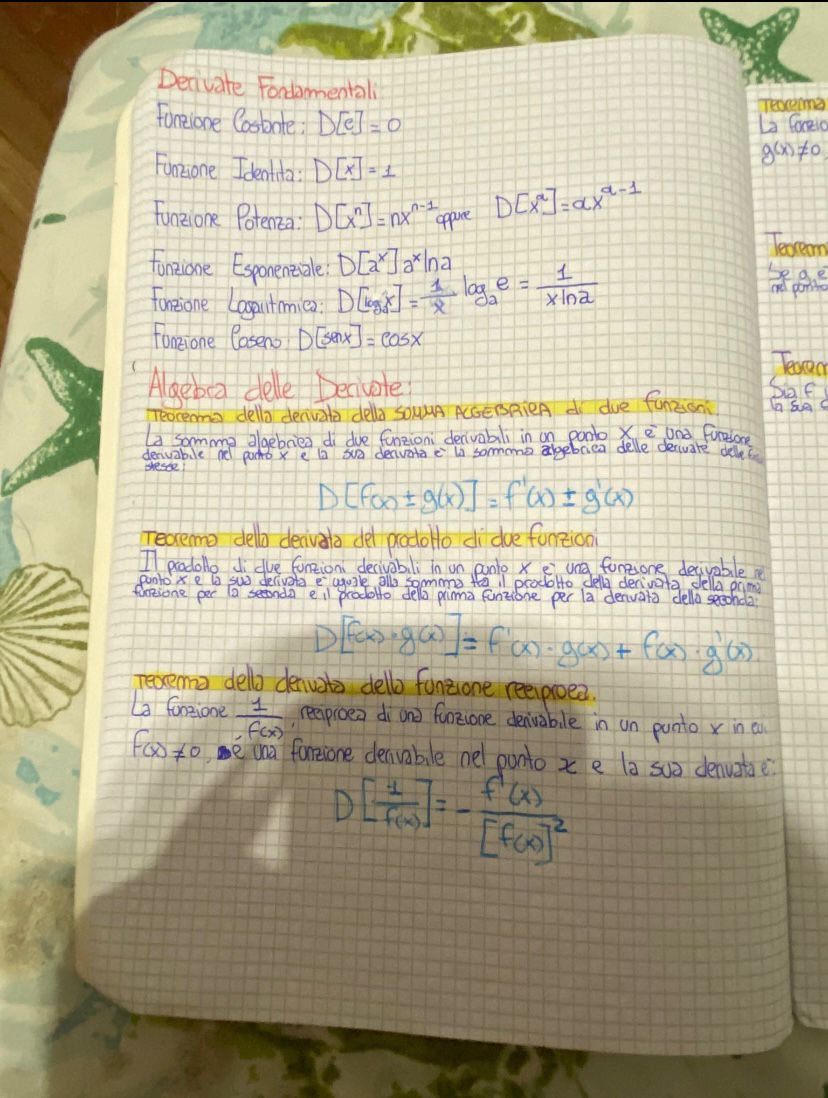 Derivate Fondamentali
Funzione Costante: D[c] = 0
Funzione Identità: D[x] = 1
Funzione Potenza: D[xⁿ] = nxⁿ⁻¹ oppure D[xᵅ] = αxᵅ⁻¹
Funzione Esponenziale: D[aˣ] aˣ ln a
Funzione Logaritmica: D[logₐx] = 1/x logₐ e = 1/(x ln a)
Funzione Coseno: D[senx] = cosx
Algebra delle Derivate:
Teorema della derivata della SOMMA ALGEBRICA di due funzioni
La somma algebrica di due funzioni derivabili in un punto x è una funzione
derivabile nel punto x e la sua derivata è la somma algebrica delle derivate delle
stesse:
D[f(x) ± g(x)] = f'(x) ± g'(x)
Teorema della derivata del prodotto di due funzioni
Il prodotto di due funzioni derivabili in un punto x è una funzione derivabile nel
punto x e la sua derivata è uguale alla somma tra il prodotto della derivata della prima
funzione per la seconda e il prodotto della prima funzione per la derivata della seconda:
D[f(x) · g(x)] = f'(x) · g(x) + f(x) · g'(x).
Teorema della derivata della funzione reciproca.
La funzione 1/f(x), reciproca di una funzione derivabile in un punto x in cui
f(x) ≠ 0, è una funzione derivabile nel punto x e la sua derivata è:
D[1/f(x)] = - f'(x)/[f(x)]²
Teorema
La funzio
g(x) ≠ 0
Teorem
Se g è
nel punto
Teorem
Sia f
la sua